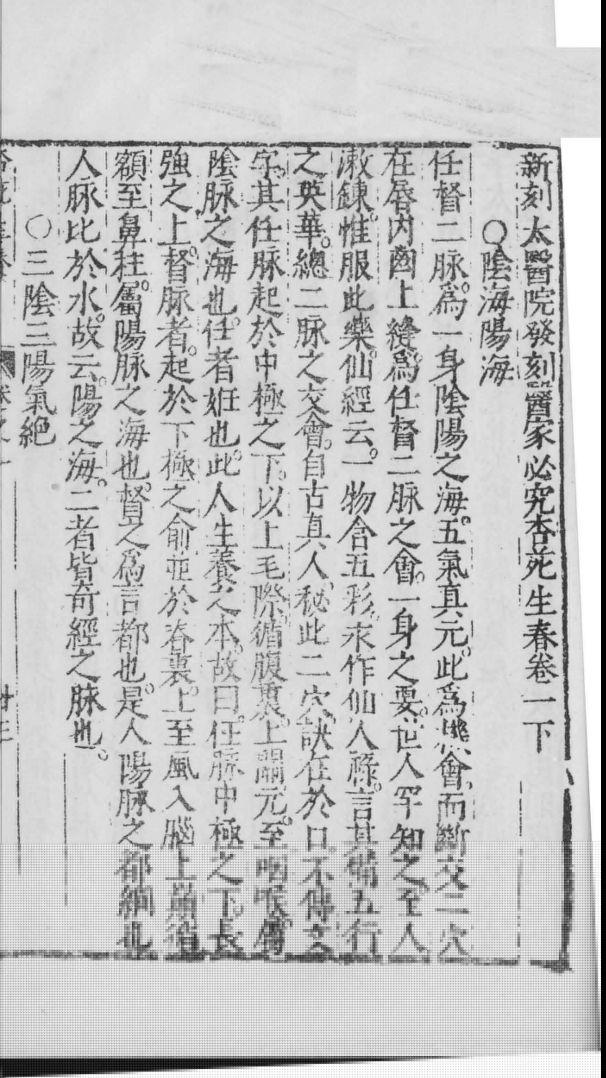 新刻太醫院發刻醫家必究杏苑生春卷一下
○陰海陽海
任督二脉。爲一身陰陽之海。五氣真元。此爲機會。而齗交二穴
在唇内齒上縫。爲任督二脉之會。一身之要。世人罕知之。至人
漱鍊。惟服此藥。仙經云。一物含五彩。永作仙人祿。言其備五行
之英華。總二脉之交會。自古真人秘此二穴。訣在於口。不傳文
字。其任脉起於中極之下。以上毛際。循腹裏。上關元。至咽喉。屬
陰脉之海也。任者妊也。此人生養之本。故曰。任脉中極之下。長
強之上。督脉者。起於下極之俞。並於脊裏。上至風入腦上巔。循
額至鼻柱。屬陽脉之海也。督之爲言都也。是人陽脉之都綱也
人脉比於水。故云。陽之海。二者皆奇經之脉也。
○三陰三陽氣絶